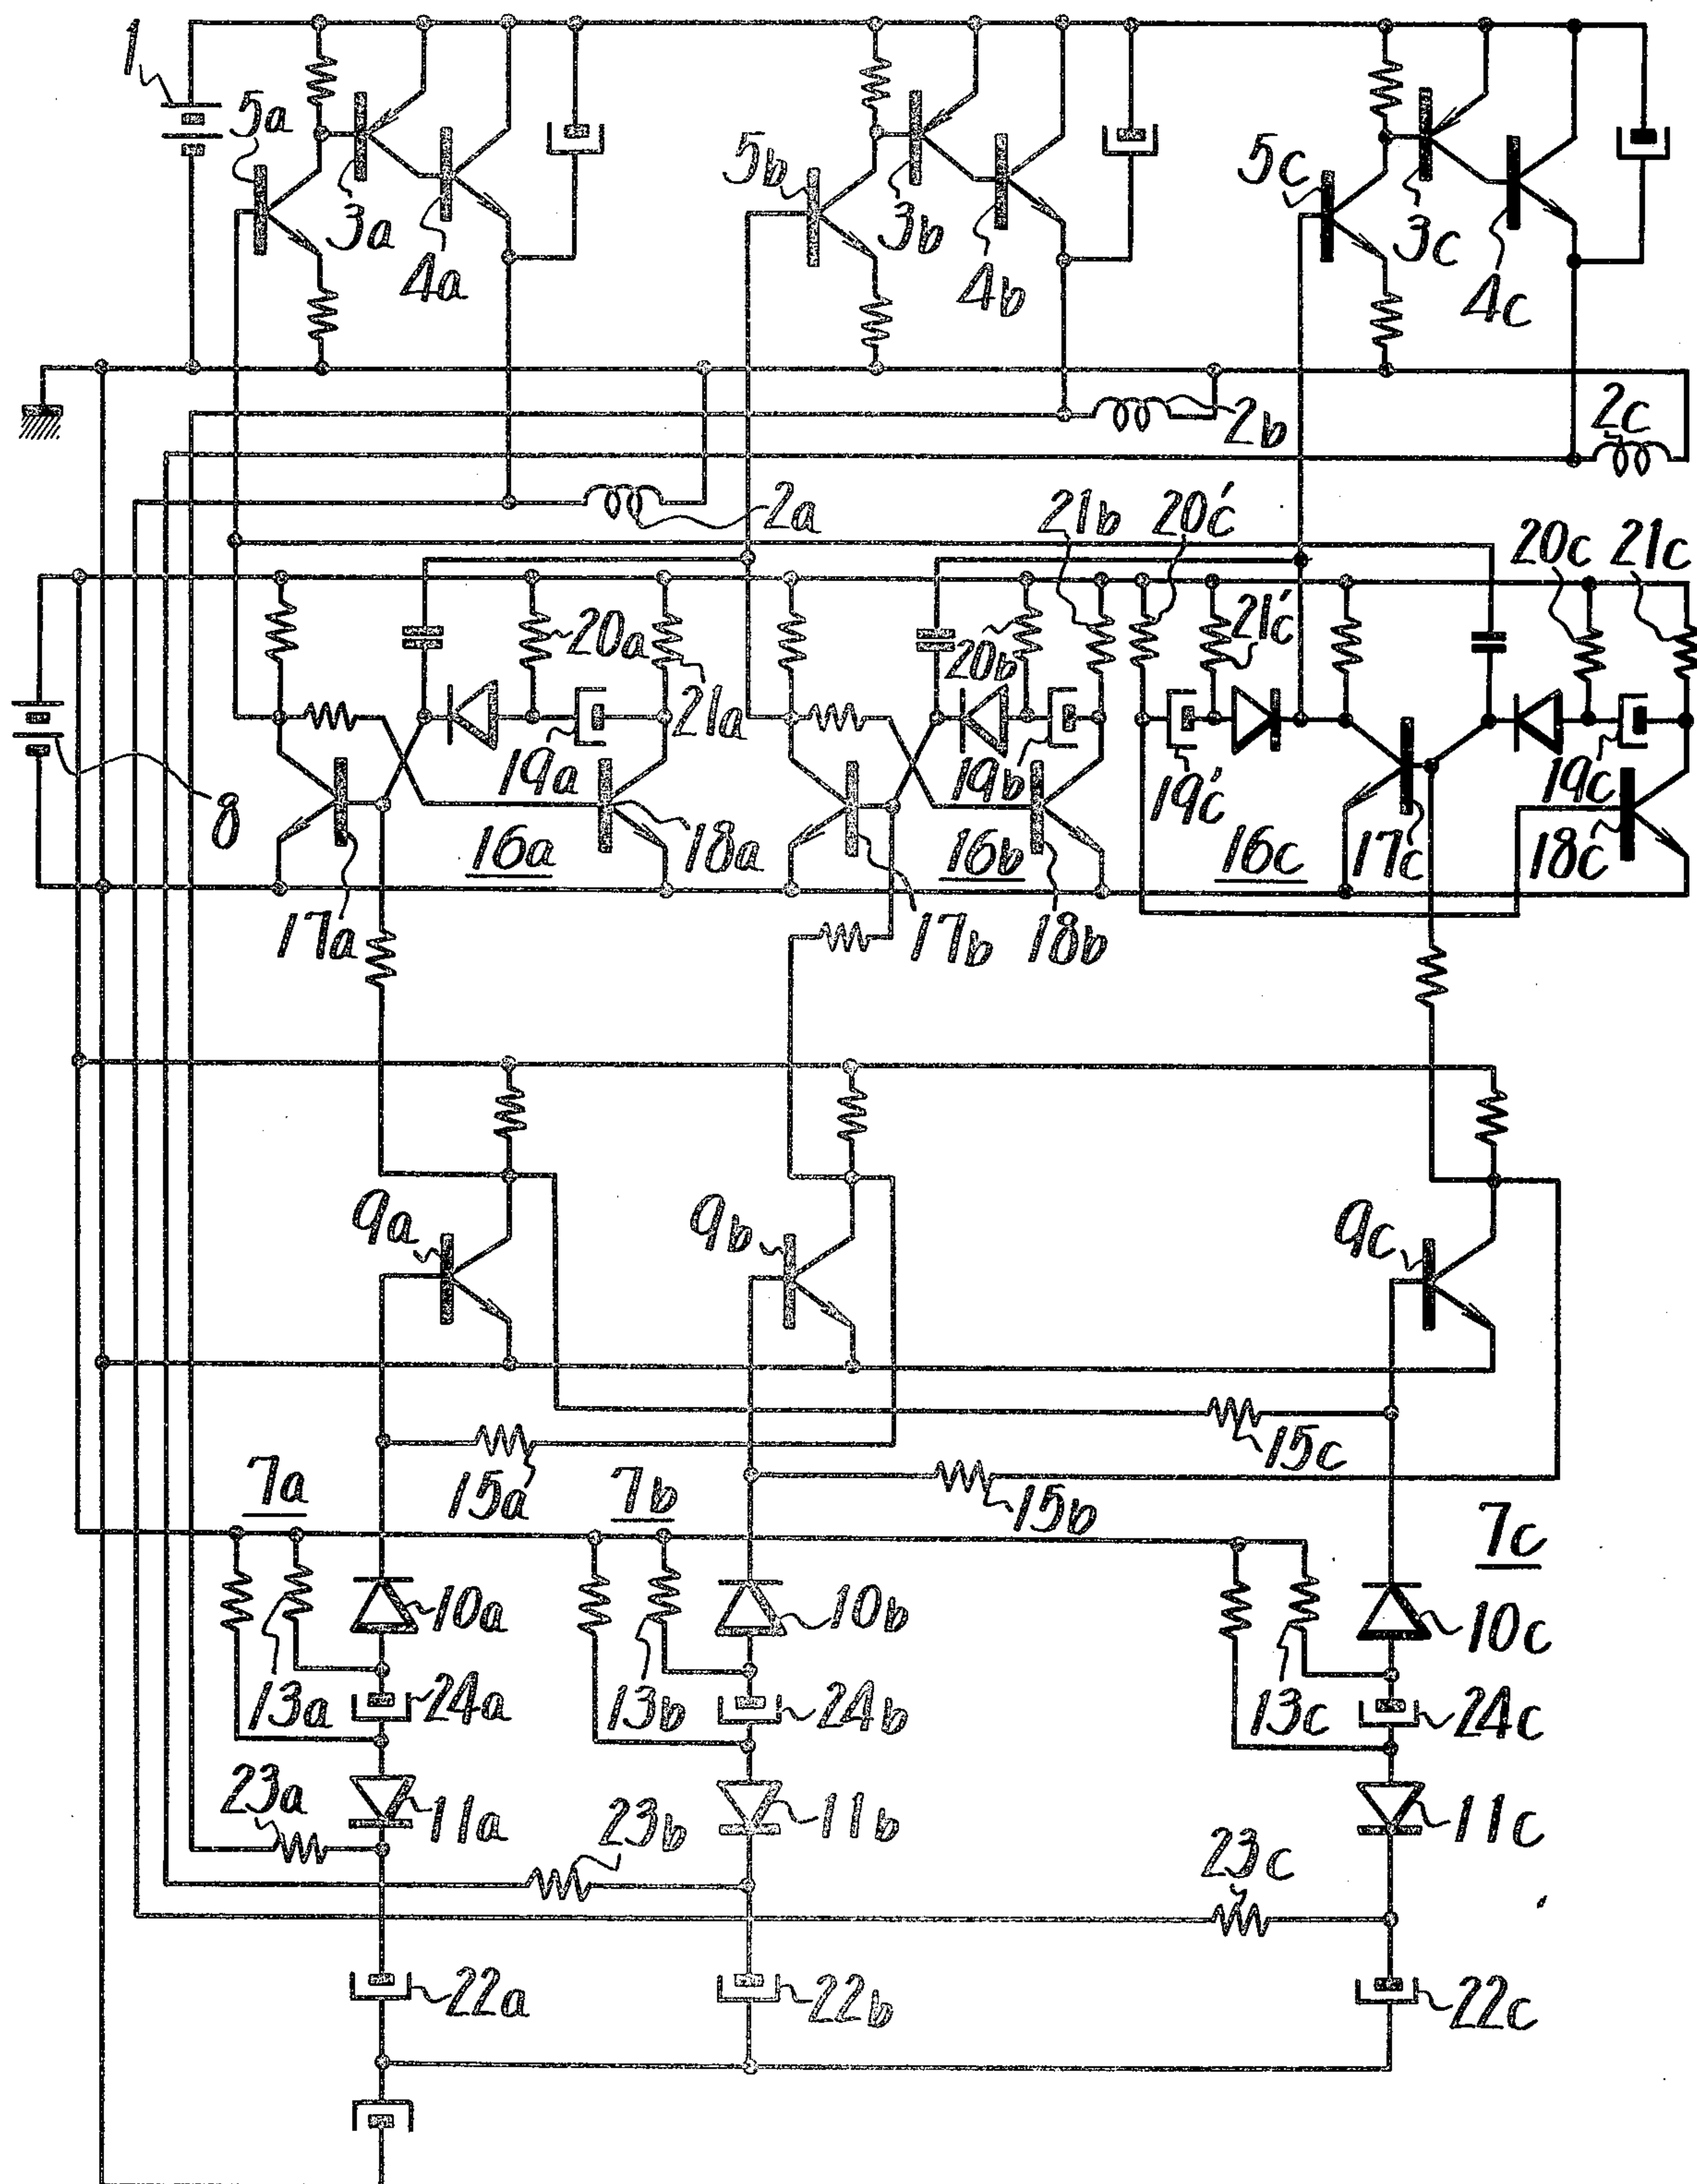 1
5a
3a
4a
5b
3b
4b
5c
3c
4c
2b
2c
2a
21b
20'c
20c
21c
20a
21a
20b
21'c
19a
19b
19'c
19c
8
16a
18a
16b
16c
17c
18c
17a
17b
18b
9a
9b
9c
15c
7a
15a
7b
15b
7c
10a
10b
10c
13a
24a
13b
24b
13c
24c
23a
11a
23b
11b
23c
11c
22a
22b
22c